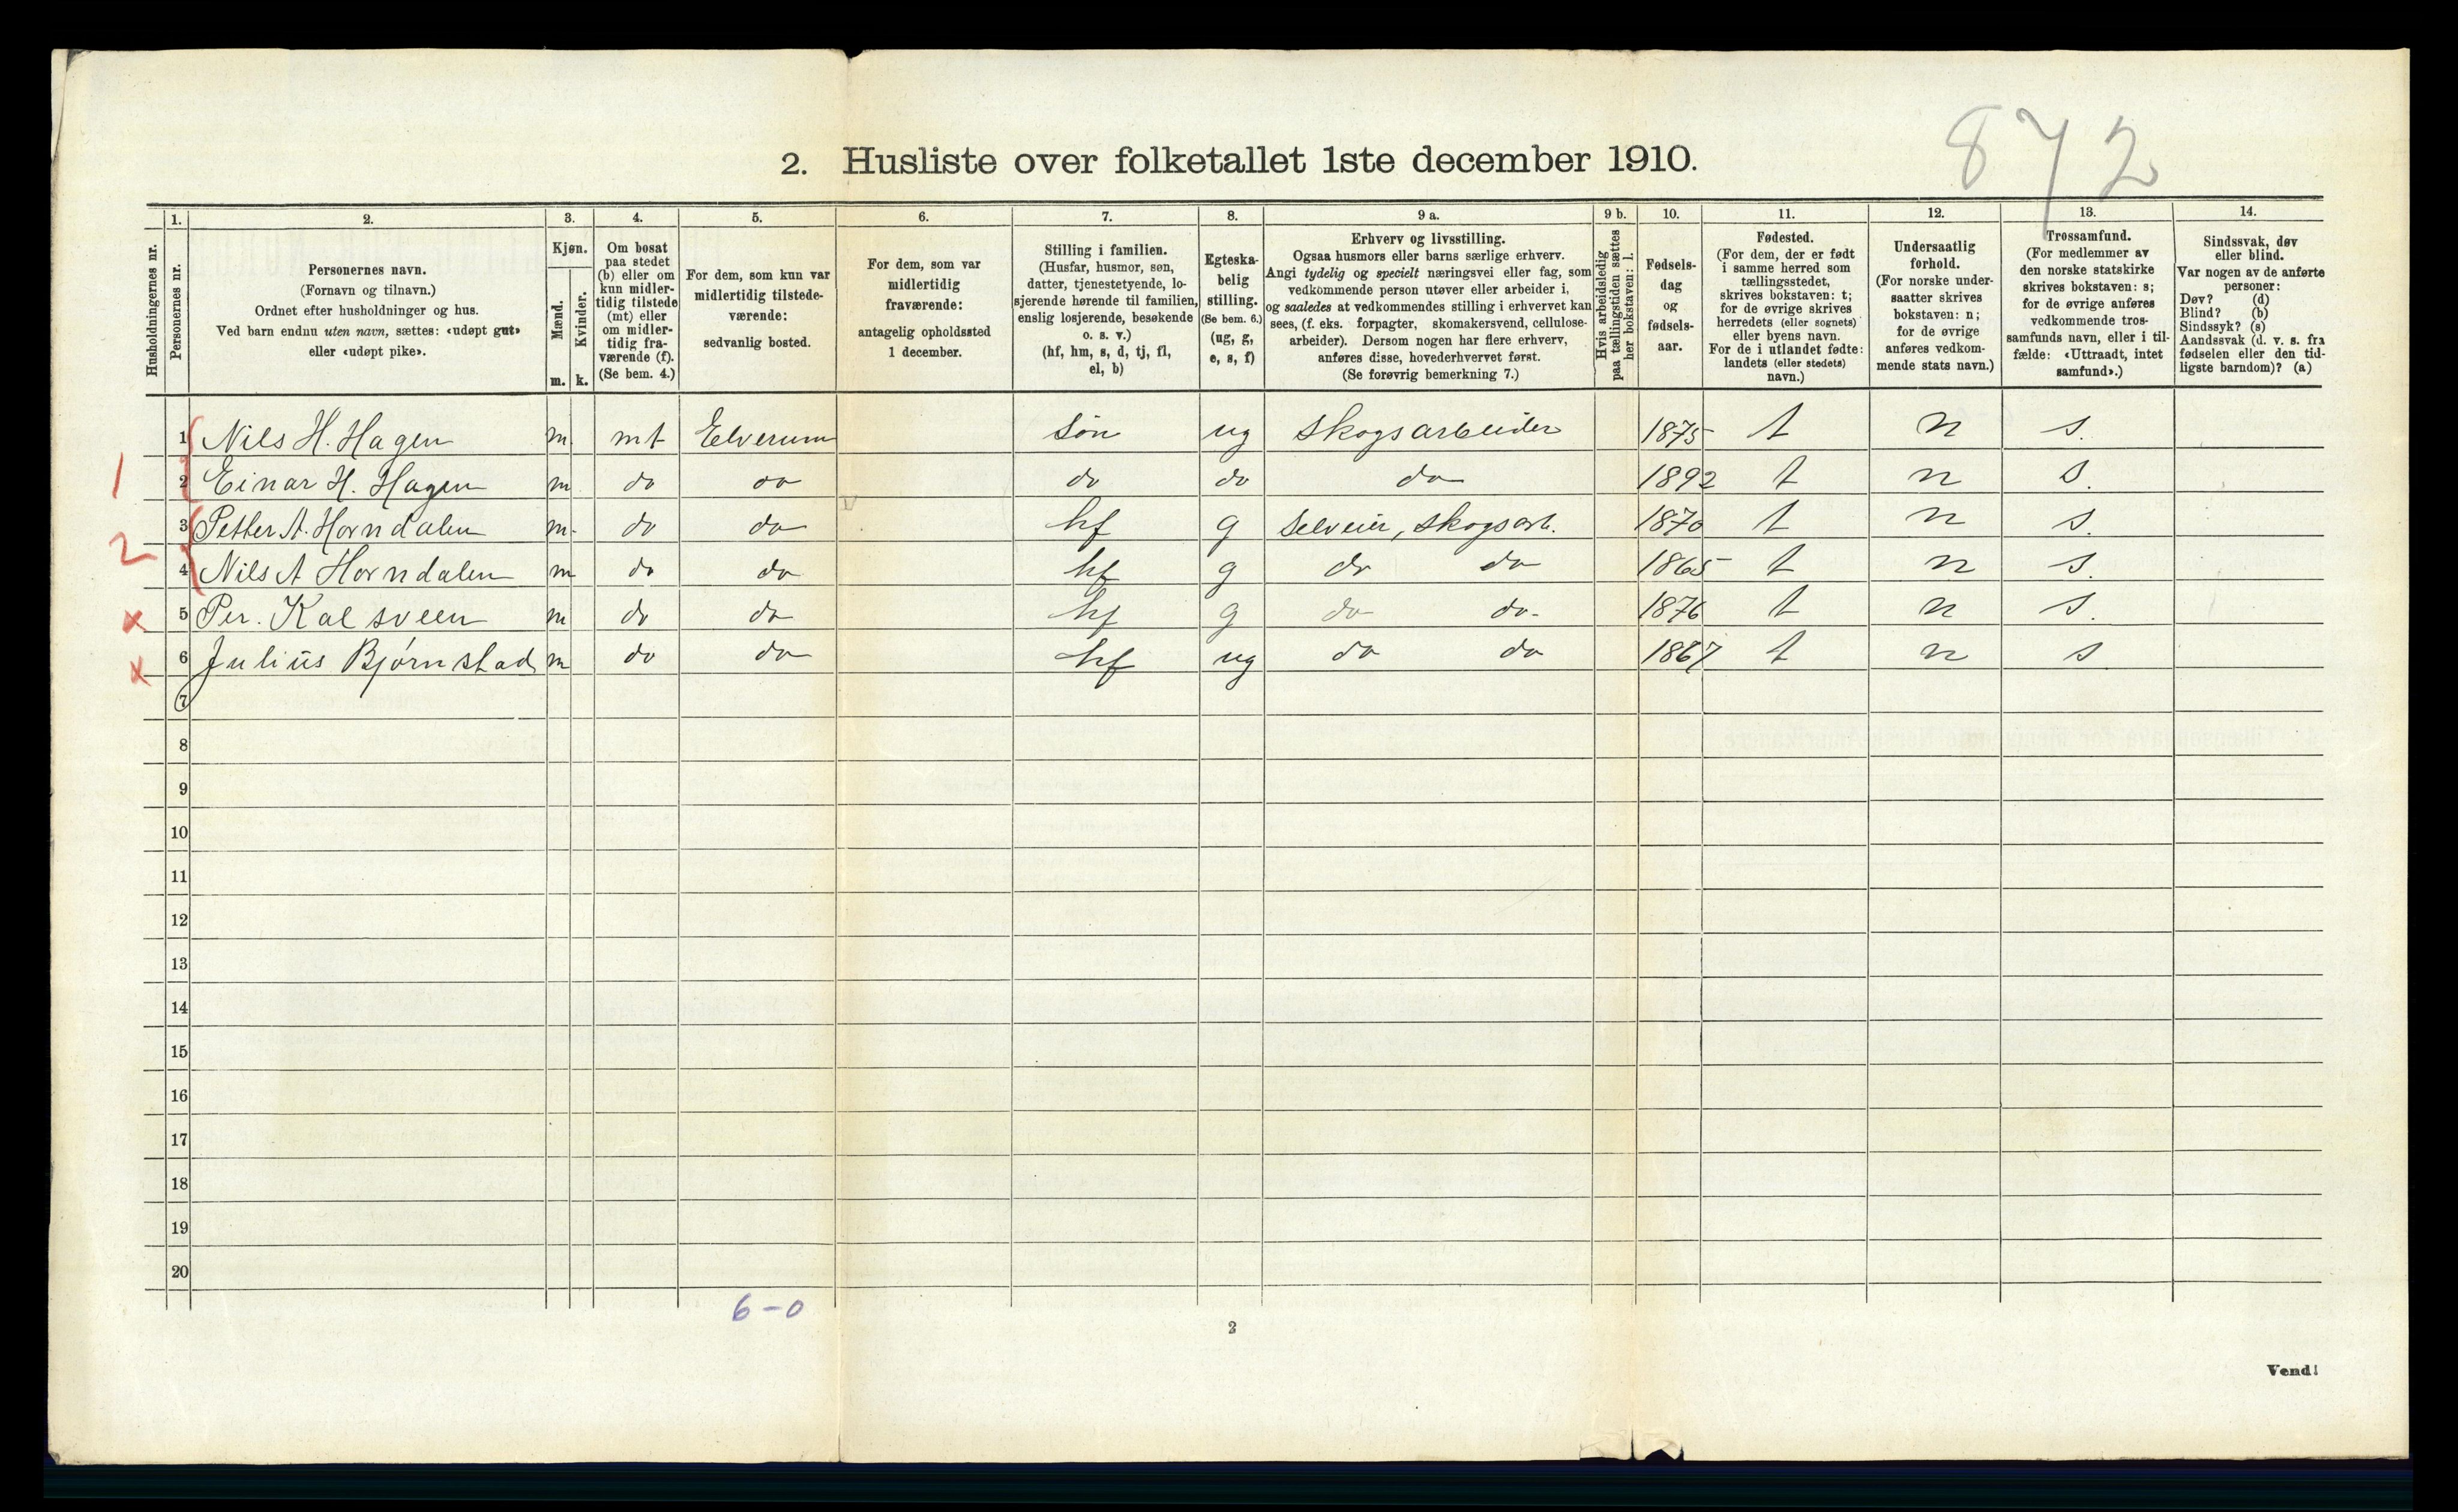 872
2. Husliste over folketallet 1ste december 1910.
Husholdningernes nr.
1.
Personernes nr.
2.
Personernes navn.
(Fornavn og tilnavn.)
Ordnet efter husholdninger og hus.
Ved barn endnu uten navn, sættes: «udøpt gut»
eller «udøpt pike».
3.
Kjøn.
Mænd.
Kvinder.
m. k.
4.
Om bosat
paa stedet
(b) eller om
kun midler-
tidig tilstede
(mt) eller
om midler-
tidig fra-
værende (f).
(Se bem. 4.)
5.
For dem, som kun var
midlertidig tilstede-
værende:
sedvanlig bosted.
6.
For dem, som var
midlertidig
fraværende:
antagelig opholdssted
1 december.
7.
Stilling i familien.
(Husfar, husmor, søn,
datter, tjenestetyende, lo-
sjerende hørende til familien,
enslig losjerende, besøkende
o. s. v.)
(hf, hm, s, d, tj, fl,
el, b)
8.
Egteska-
belig
stilling.
(Se bem. 6.)
(ug, g,
e, s, f)
9 a.
Erhverv og livsstilling.
Ogsaa husmors eller barns særlige erhverv.
Angi tydelig og specielt næringsvei eller fag, som
vedkommende person utøver eller arbeider i,
og saaledes at vedkommendes stilling i erhvervet kan
sees, (f. eks. forpagter, skomakersvend, cellulose-
arbeider). Dersom nogen har flere erhverv,
anføres disse, hovederhvervet først.
(Se forøvrig bemerkning 7.)
9 b.
Hvis arbeidsledig
paa tællingstiden sættes
her bokstaven: l.
10.
Fødsels-
dag
og
fødsels-
aar.
11.
Fødested.
(For dem, der er født
i samme herred som
tællingsstedet,
skrives bokstaven: t;
for de øvrige skrives
herredets (eller sognets)
eller byens navn.
For de i utlandet fødte:
landets (eller stedets)
navn.)
12.
Undersaatlig
forhold.
(For norske under-
saatter skrives
bokstaven: n;
for de øvrige
anføres vedkom-
mende stats navn.)
13.
Trossamfund.
(For medlemmer av
den norske statskirke
skrives bokstaven: s;
for de øvrige anføres
vedkommende tros-
samfunds navn, eller i til-
fælde: «Uttraadt, intet
samfund».)
14.
Sindssvak, døv
eller blind.
Var nogen av de anførte
personer:
Døv? (d)
Blind? (b)
Sindssyk? (s)
Aandssvak (d. v. s. fra
fødselen eller den tid-
ligste barndom)? (a)
1 Nils H. Hagen m. mt Elverum søn ug Skogsarbeider 1875 t n s.
1 2 Einar H. Hagen m do do do do do 1892 t n s.
3 Petter A. Horndalen m. do do hf g Selveier, Skogsarb. 1870 t n s.
2 4 Nils A Horndalen m do do hf g do do 1865 t n s.
x 5 Per. Kalsveen m do do hf g do do 1876 t n s.
x 6 Julius Bjørnstad m do do hf ug do do 1867 t n s
7
8
9
10
11
12
13
14
15
16
17
18
19
20
6-0
2
Vend!